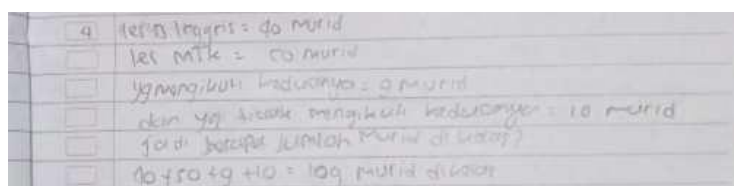 4 les B. Inggris = 40 murid
les MTK = 50 murid
yg mengikuti keduanya = 9 murid
dan yg tidak mengikuti keduanya = 10 murid
jadi berapa jumlah murid di kelas?
40+50+9+10 = 109 murid dikelas